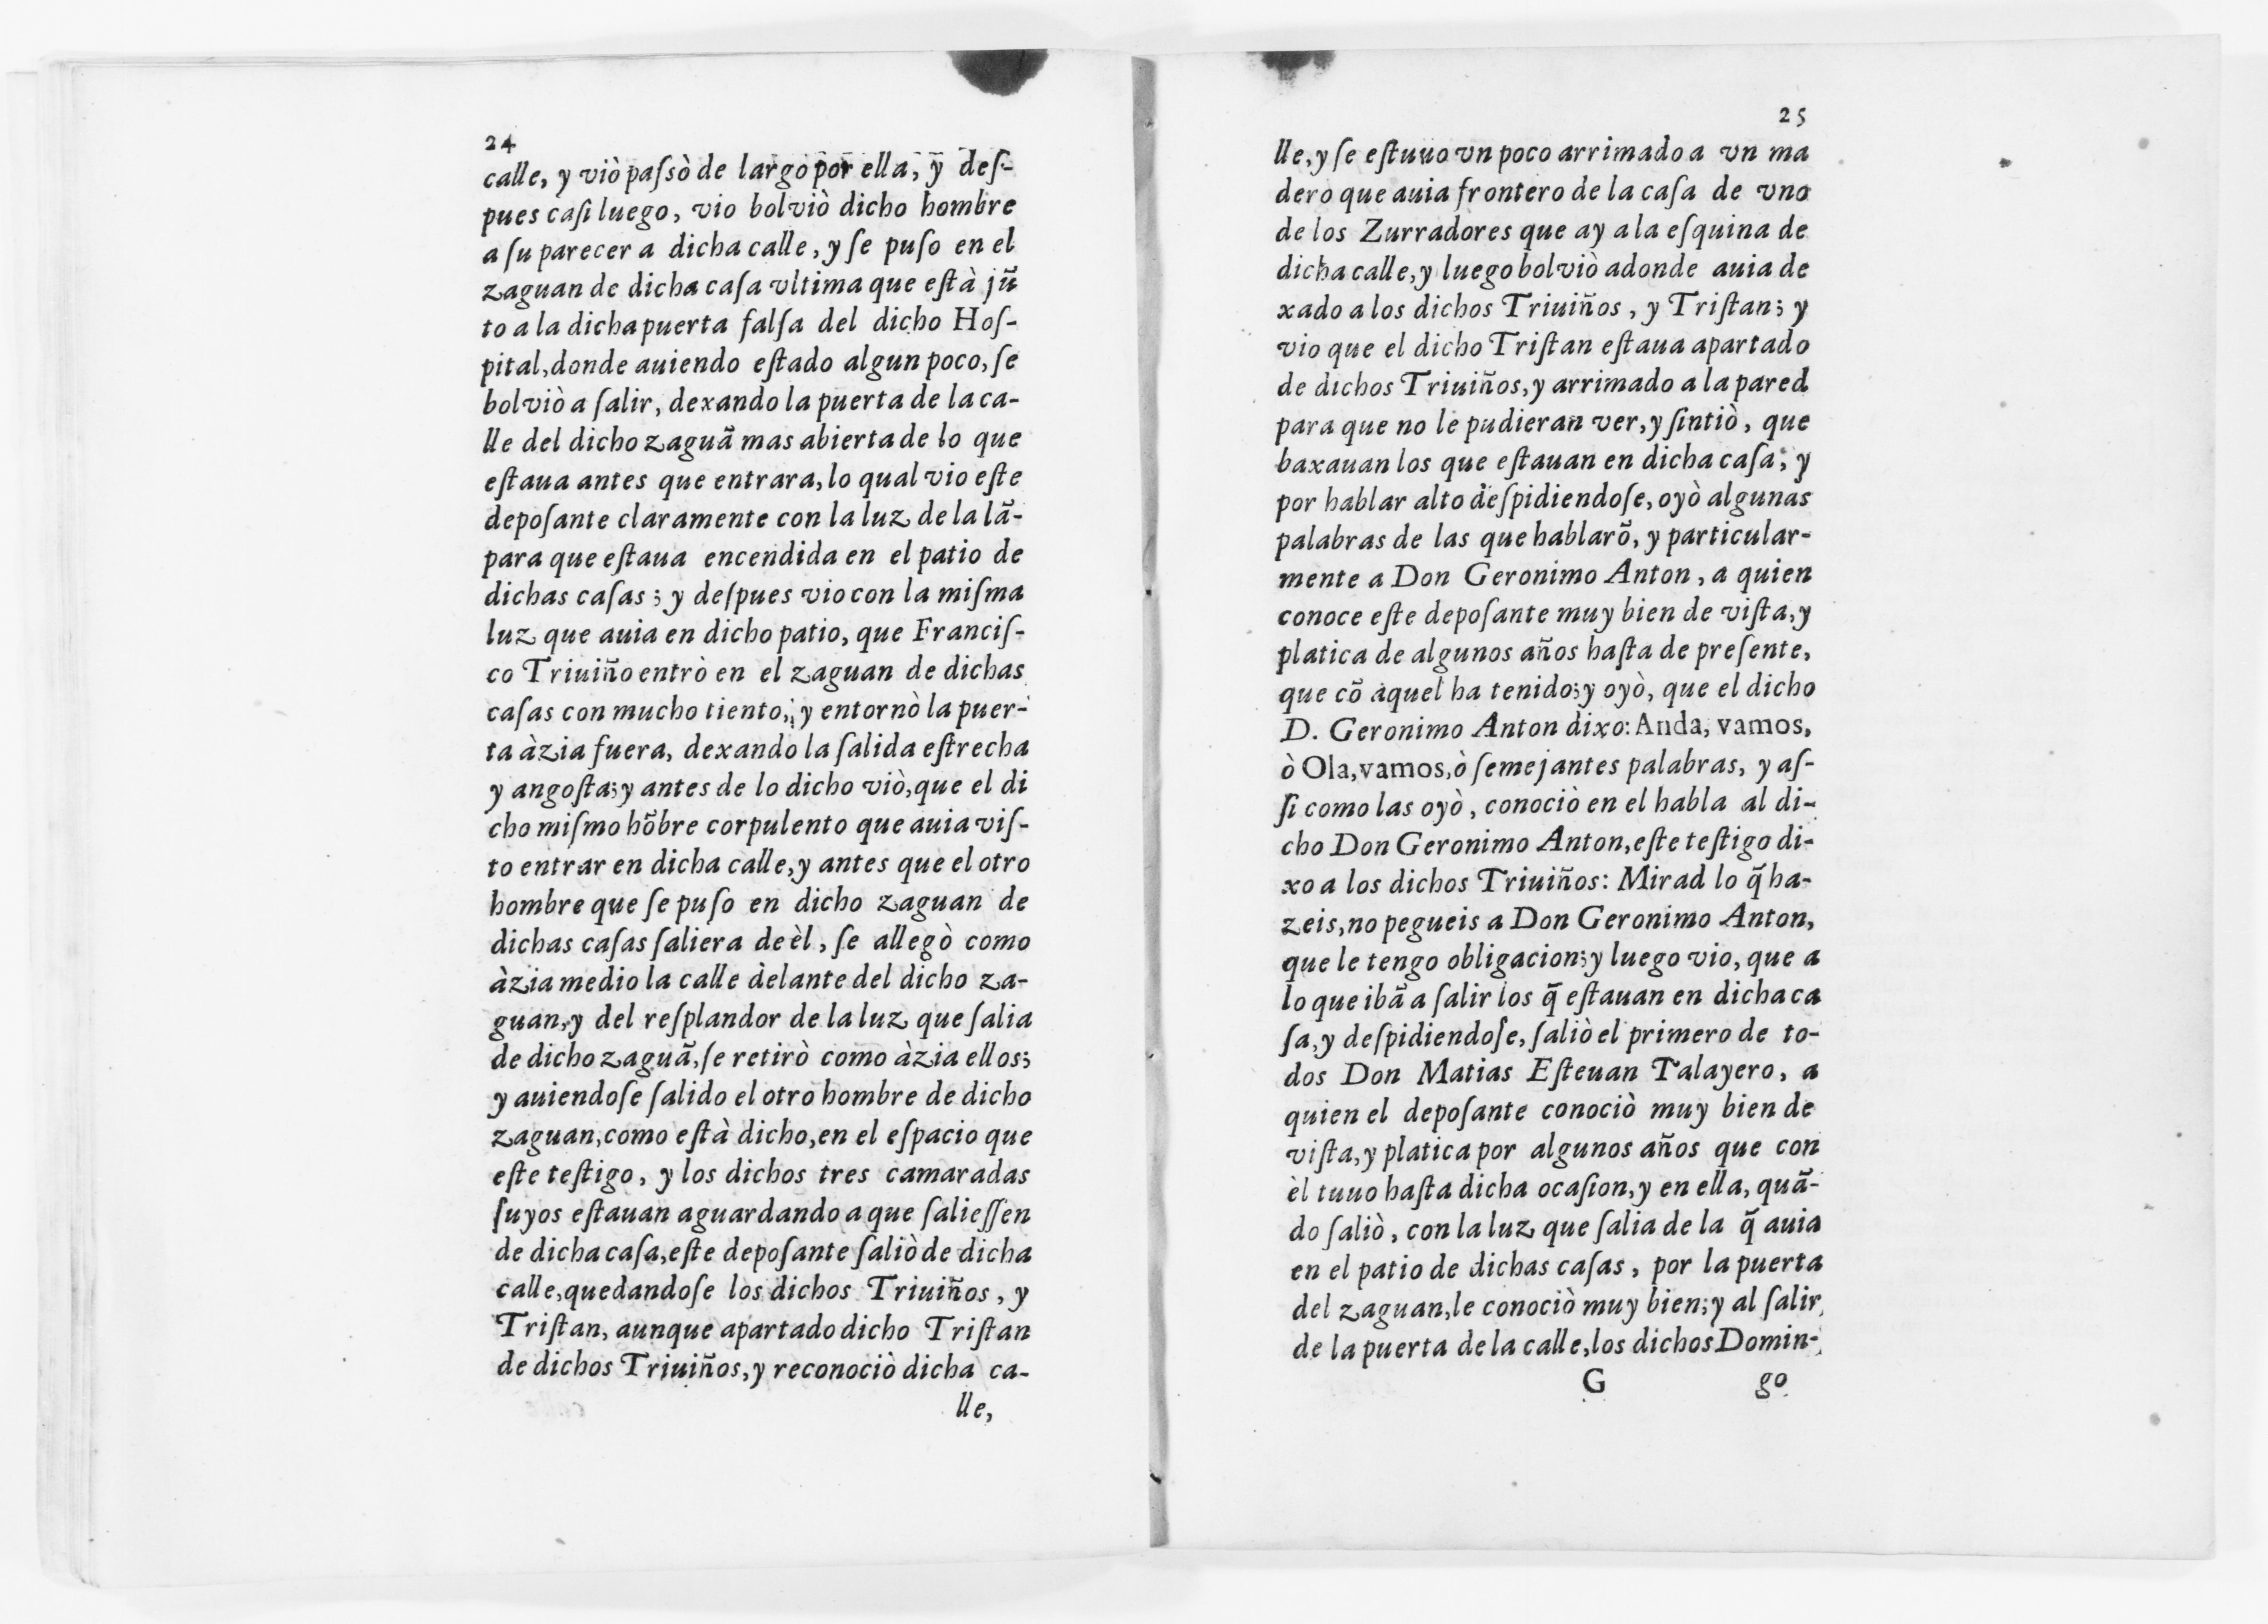 24
calle, y viò paſsò de largo por ella, ỹ deſ-
pues caſi luego, vio bolviò dicho hombre
a ſu parecer a dicha calle, y ſe puſo en el
zaguan de dicha caſa vltima que eſtà jũ
to a la dicha puerta falſa del dicho Hoſ-
pital, donde auiendo eſtado algun poco, ſe
bolviò a ſalir, dexando la puerta de la ca-
lle del dicho zaguã mas abierta de lo que
eſtaua antes que entrara, lo qual vio eſte
depoſante claramente con la luz de la lã-
para que eſtaua encendida en el patio de
dichas caſas; y deſpues vio con la miſma
luz que auia en dicho patio, que Franciſ-
co Triuiño entrò en el zaguan de dichas
caſas con mucho tiento, y entornò la puer-
ta àzia fuera, dexando la ſalida eſtrecha
y angoſta; y antes de lo dicho viò, que el di
cho miſmo hõbre corpulento que auia viſ-
to entrar en dicha calle, y antes que el otro
hombre que ſe puſo en dicho zaguan de
dichas caſas ſaliera de èl, ſe allegò como
àzia medio la calle delante del dicho za-
guan, y del reſplandor de la luz que ſalia
de dicho zaguã, ſe retirò como àzia ellos;
y auiendoſe ſalido el otro hombre de dicho
zaguan, como eſtà dicho, en el eſpacio que
eſte teſtigo, y los dichos tres camaradas
ſuyos eſtauan aguardando a que ſalieſſen
de dicha caſa, eſte depoſante ſaliò de dicha
calle, quedandoſe los dichos Triuiños, y
Triſtan, aunque apartado dicho Triſtan
de dichos Triuiños, y reconociò dicha ca-
lle,
25
lle, y ſe eſtuuo vn poco arrimado a vn ma
dero que auia frontero de la caſa de vno
de los Zurradores que ay a la eſquina de
dicha calle, y luego bolviò adonde auia de
xado a los dichos Triuiños, y Triſtan; y
vio que el dicho Triſtan eſtaua apartado
de dichos Triuiños, y arrimado a la pared
para que no le pudieran ver, y ſintiò, que
baxauan los que eſtauan en dicha caſa; y
por hablar alto deſpidiendoſe, oyò algunas
palabras de las que hablarõ, y particular-
mente a Don Geronimo Anton, a quien
conoce eſte depoſante muy bien de viſta, y
platica de algunos años haſta de preſente,
que cõ aquel ha tenido; y oyò, que el dicho
D. Geronimo Anton dixo: Anda, vamos,
ò Ola, vamos, ò ſemejantes palabras, y aſ-
ſi como las oyò, conociò en el habla al di-
cho Don Geronimo Anton, eſte teſtigo di-
xo a los dichos Triuiños: Mirad lo q̃ ha-
zeis, no pegueis a Don Geronimo Anton,
que le tengo obligacion; y luego vio, que a
lo que ibã a ſalir los q̃ eſtauan en dicha ca
ſa, y deſpidiendoſe, ſaliò el primero de to-
dos Don Matias Eſteuan Talayero, a
quien el depoſante conociò muy bien de
viſta, y platica por algunos años que con
èl tuuo haſta dicha ocaſion, y en ella, quã-
do ſaliò, con la luz que ſalia de la q̃ auia
en el patio de dichas caſas, por la puerta
del zaguan, le conociò muy bien; y al ſalir
de la puerta de la calle, los dichos Domin-
G go